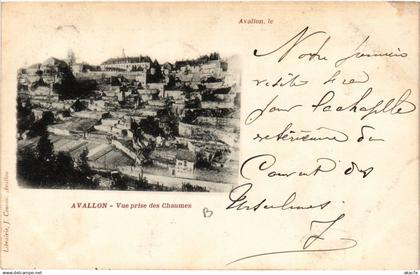 Avallon, le
Notre première
visite hier
pour la chapelle
extérieure du
Couvent des
Ursulines
J
AVALLON - Vue prise des Chaumes
B
Librairie, J. Avallon